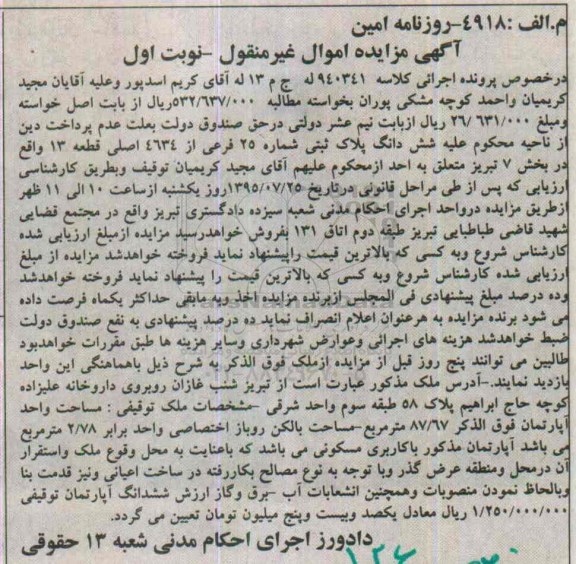 م.الف :۴۹۱۸-روزنامه امین
آگهی مزایده اموال غیرمنقول -نوبت اول
درخصوص پرونده اجرائی کلاسه ۹۴۰۳۴۱ له ج م ۱۳ له آقای کریم اسدپور وعلیه آقایان مجید
کریمیان واحمد کوچه مشکی پوران بخواسته مطالبه ۵۳۲/۶۳۷/۰۰۰ریال از بابت اصل خواسته
ومبلغ ۲۶/ ۶۳۱/۰۰۰ ریال ازبابت نیم عشر دولتی درحق صندوق دولت بعلت عدم پرداخت دین
از ناحیه محکوم علیه شش دانگ پلاک ثبتی شماره ۲۵ فرعی از ۴۶۳۴ اصلی قطعه ۱۳ واقع
در بخش ۷ تبریز متعلق به احد ازمحکوم علیهم آقای مجید کریمیان توقیف وبطریق کارشناسی
ارزیابی که پس از طی مراحل قانونی درتاریخ ۱۳۹۵/۰۷/۲۵روز یکشنبه ازساعت ۱۰ الی ۱۱ ظهر
ازطریق مزایده درواحد اجرای احکام مدنی شعبه سیزده دادگستری تبریز واقع در مجتمع قضایی
شهید قاضی طباطبایی تبریز طبقه دوم اتاق ۱۳۱ بفروش خواهدرسید مزایده ازمبلغ ارزیابی شده
کارشناس شروع وبه کسی که بالاترین قیمت راپیشنهاد نماید فروخته خواهدشد مزایده از مبلغ
ارزیابی شده کارشناس شروع وبه کسی که بالاترین قیمت را پیشنهاد نماید فروخته خواهدشد
وده درصد مبلغ پیشنهادی فی المجلس ازبرنده مزایده اخذ وبه مابقی حداکثر یکماه فرصت داده
می شود برنده مزایده به هرعنوان اعلام انصراف نماید ده درصد پیشنهادی به نفع صندوق دولت
ضبط خواهدشد هزینه های اجرائی وعوارض شهرداری وسایر هزینه ها طبق مقررات خواهدبود
طالبین می توانند پنج روز قبل از مزایده ازملک فوق الذکر به شرح ذیل باهماهنگی این واحد
بازدید نمایند.-آدرس ملک مذکور عبارت است از تبریز شنب غازان روبروی داروخانه علیزاده
کوچه حاج ابراهیم پلاک ۵۸ طبقه سوم واحد شرقی -مشخصات ملک توقیفی : مساحت واحد
آپارتمان فوق الذکر ۸۷/۶۷ مترمربع-مساحت بالکن روباز اختصاصی واحد برابر ۲/۷۸ مترمربع
می باشد آپارتمان مذکور باکاربری مسکونی می باشد که باعنایت به محل وقوع ملک واستقرار
آن درمحل ومنطقه عرض گذر وبا توجه به نوع مصالح بکاررفته در ساخت اعیانی ونیز قدمت بنا
وبالحاظ نمودن منصوبات وهمچنین انشعابات آب -برق وگاز ارزش ششدانگ آپارتمان توقیفی
۱/۲۵۰/۰۰۰/۰۰۰ ریال معادل یکصد وبیست وپنج میلیون تومان تعیین می گردد.
دادورز اجرای احکام مدنی شعبه ۱۳ حقوقی